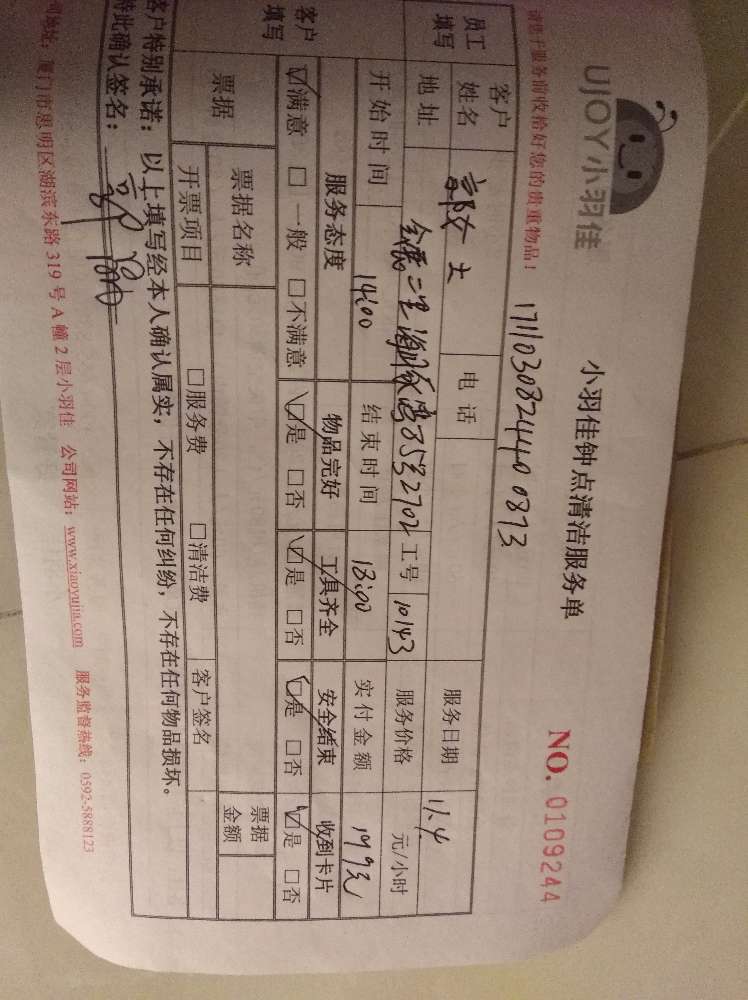 UJOY小羽佳
小羽佳钟点清洁服务单
NO. 0109244
请您于服务前收拾好您的贵重物品!
17110308244400873
员工填写
客户姓名
女士
电话
服务日期
11.4
地址
8532702
工号
10143
服务价格
元/小时
开始时间
14:00
结束时间
18:00
实付金额
199元
客户填写
服务态度
物品完好
工具齐全
安全结束
收到卡片
☑满意 □一般 □不满意
☑是 □否
☑是 □否
☑是 □否
☑是 □否
票据
票据名称
票据金额
开票项目
□服务费 □清洁费
客户签名
客户特别承诺:以上填写经本人确认属实,不存在任何纠纷,不存在任何物品损坏。
特此确认签名:
司地址:厦门市思明区湖滨东路 319 号 A 幢 2 层小羽佳 公司网站:www.xiaoyujia.com 服务监督热线:0592-5888123